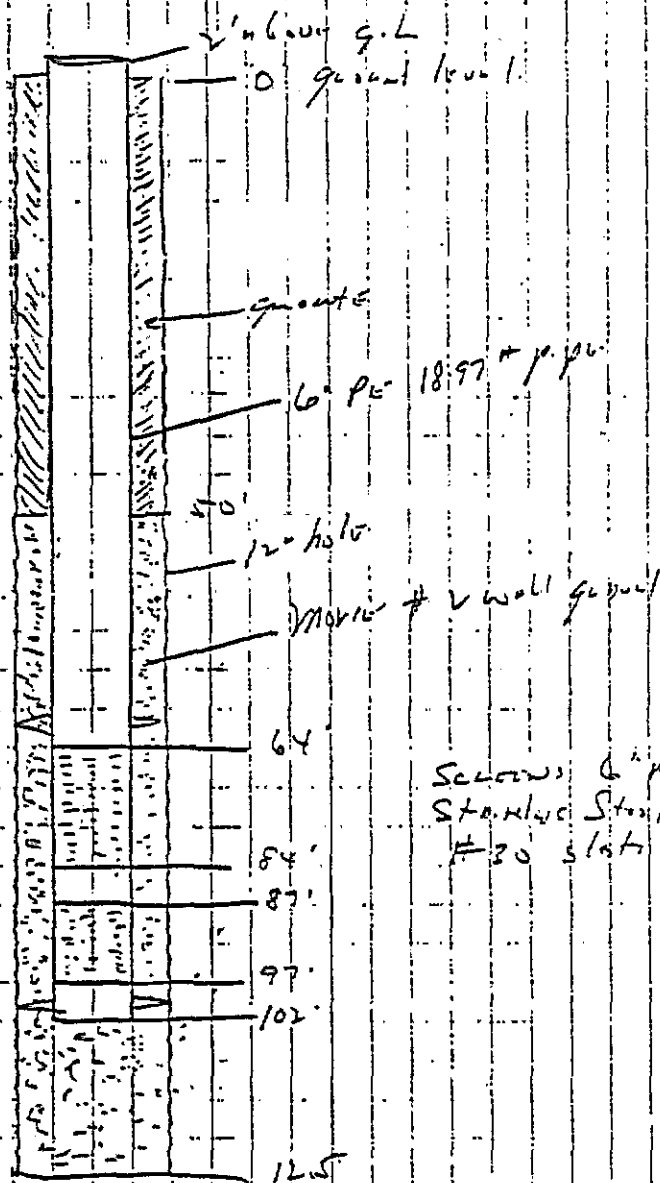 2' above g.L
0' ground level.
groute
6" PE 18.97 #
40'
12" hole
Morie # 2 well gravel
64'
Screens 6"
Stainless
#30 slot
84'
87'
97'
102'
125